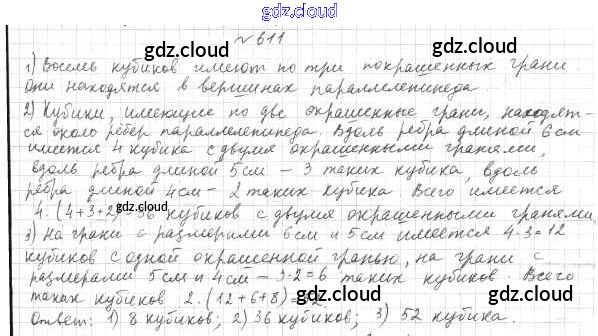 gdz.cloud
№ 611
gdz.cloud gdz.cloud
1) Восемь кубиков имеют по три покрашенных грани.
Они находятся в вершинах параллелепипеда.
2) Кубики, имеющие по две окрашенные грани, находят-
ся около рёбер параллелепипеда. Вдоль ребра длиной 6 см
имеется 4 кубика с двумя окрашенными гранями,
вдоль ребра длиной 5 см – 3 таких кубика, вдоль
ребра длиной 4 см – 2 таких кубика. Всего имеется
4·(4+3+2)=36 кубиков с двумя окрашенными гранями
3) На грани с размерами 6 см и 5 см имеется 4·3=12
кубиков с одной окрашенной гранью, на грани с
размерами 5 см и 4 см – 3·2=6 таких кубиков. Всего
таких кубиков 2·(12+6+8)=52.
Ответ: 1) 8 кубиков; 2) 36 кубиков; 3) 52 кубика.
gdz.cloud gdz.cloud
gdz.cloud gdz.cloud
gdz.cloud gdz.cloud